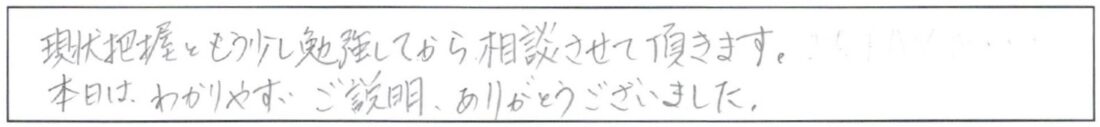 現状把握ともう少し勉強してから相談させて頂きます。
本日は、わかりやすいご説明、ありがとうございました。